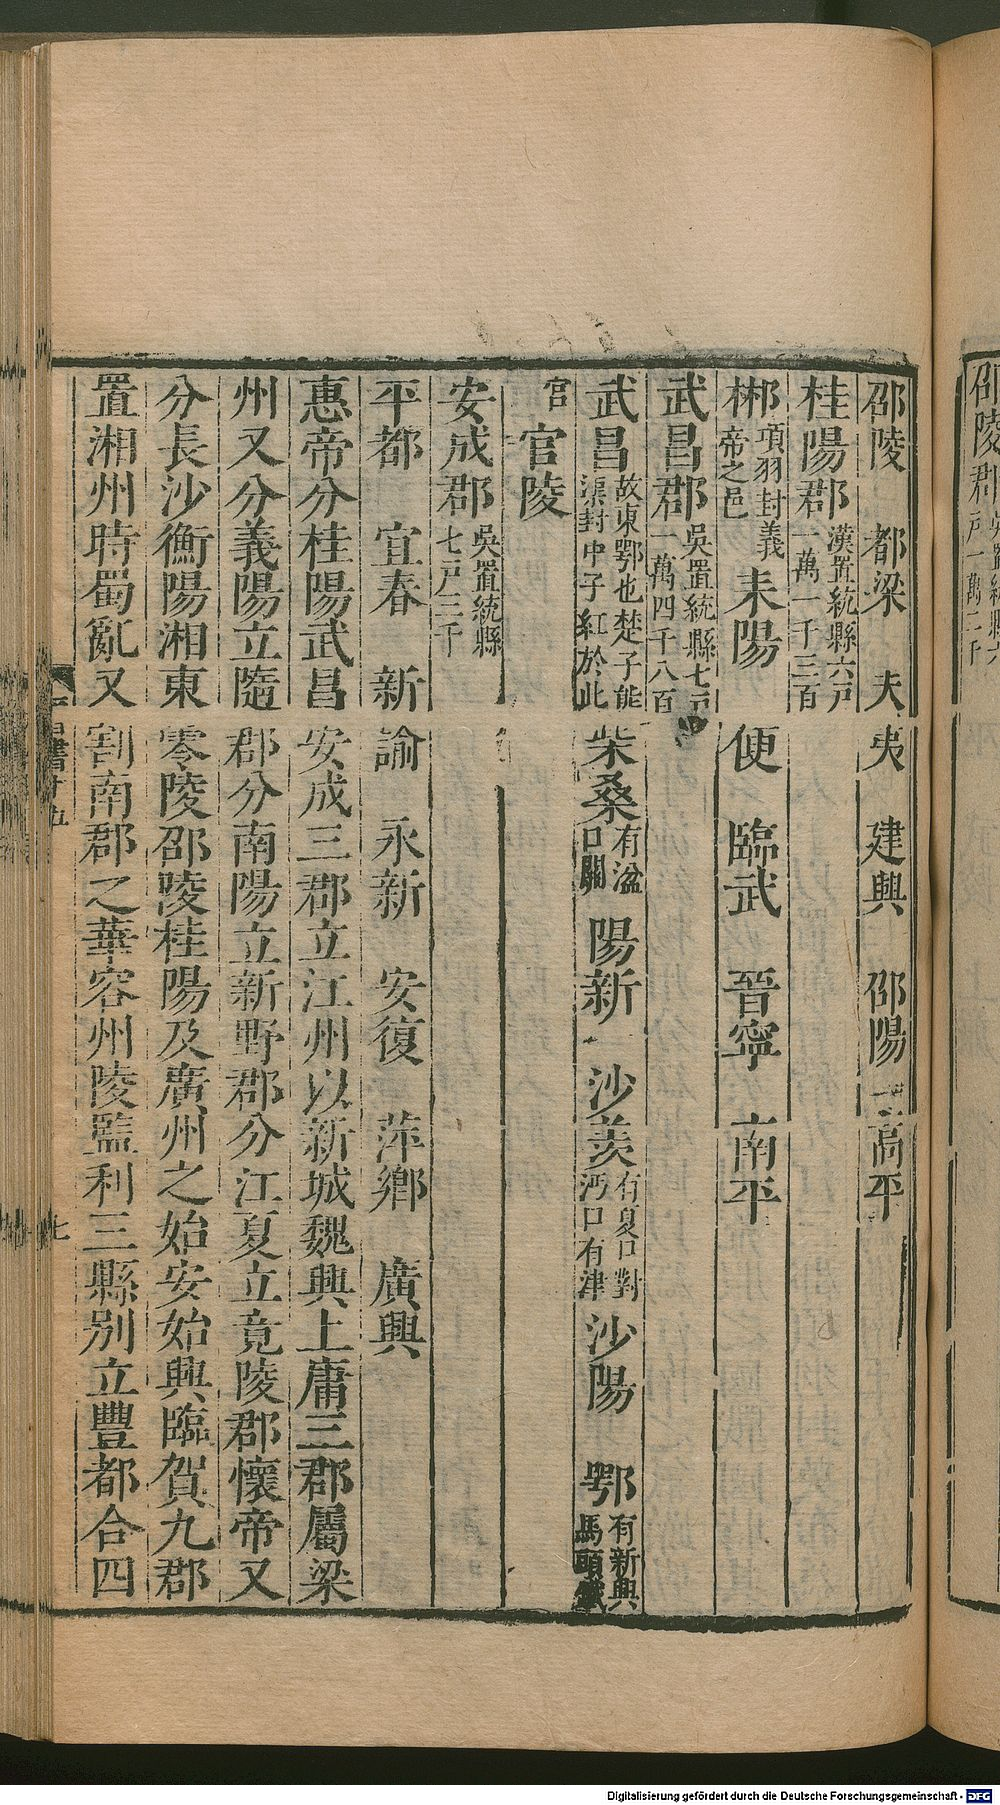 邵陵郡 吳置統縣六戶一萬二千
邵陵 都梁 夫夷 建興 邵陽 高平
桂陽郡 漢置統縣六戶一萬一千三百
郴 項羽封義帝之邑 耒陽 便 臨武 晉寧 南平
武昌郡 吳置統縣七戶一萬四千八百
武昌 故東鄂也楚子能渠封中子紅於此 柴桑 有湓口關 陽新 沙羨 有夏口對沔口有津 沙陽 鄂 有新興馬頭鐵
官 官陵
安成郡 吳置統縣七戶三千
平都 宜春 新諭 永新 安復 萍鄉 廣興
惠帝分桂陽武昌安成三郡立江州以新城魏興上庸三郡屬梁
州又分義陽立隨郡分南陽立新野郡分江夏立竟陵郡懷帝又
分長沙衡陽湘東零陵邵陵桂陽及廣州之始安始興臨賀九郡
置湘州時蜀亂又割南郡之華容州陵監利三縣別立豐都合四
晉書十五
七
Digitalisierung gefördert durch die Deutsche Forschungsgemeinschaft - DFG